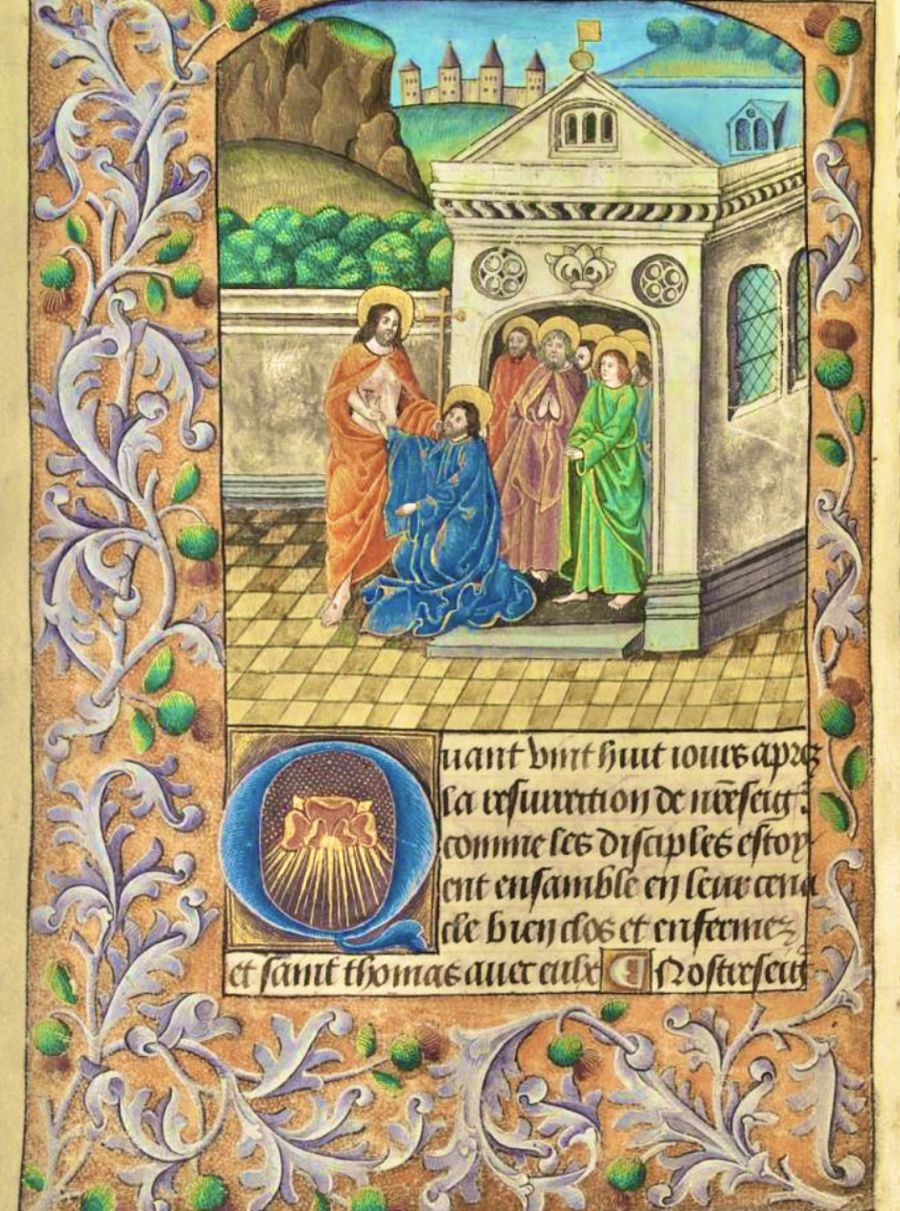 Quant vint huit iours apres
la resurrection de nr̄e seigr̄
comme les disciples estoy
ent ensamble en leur cena
cle bien clos et enfermez
et saint thomas auec eulx E Nostre seig